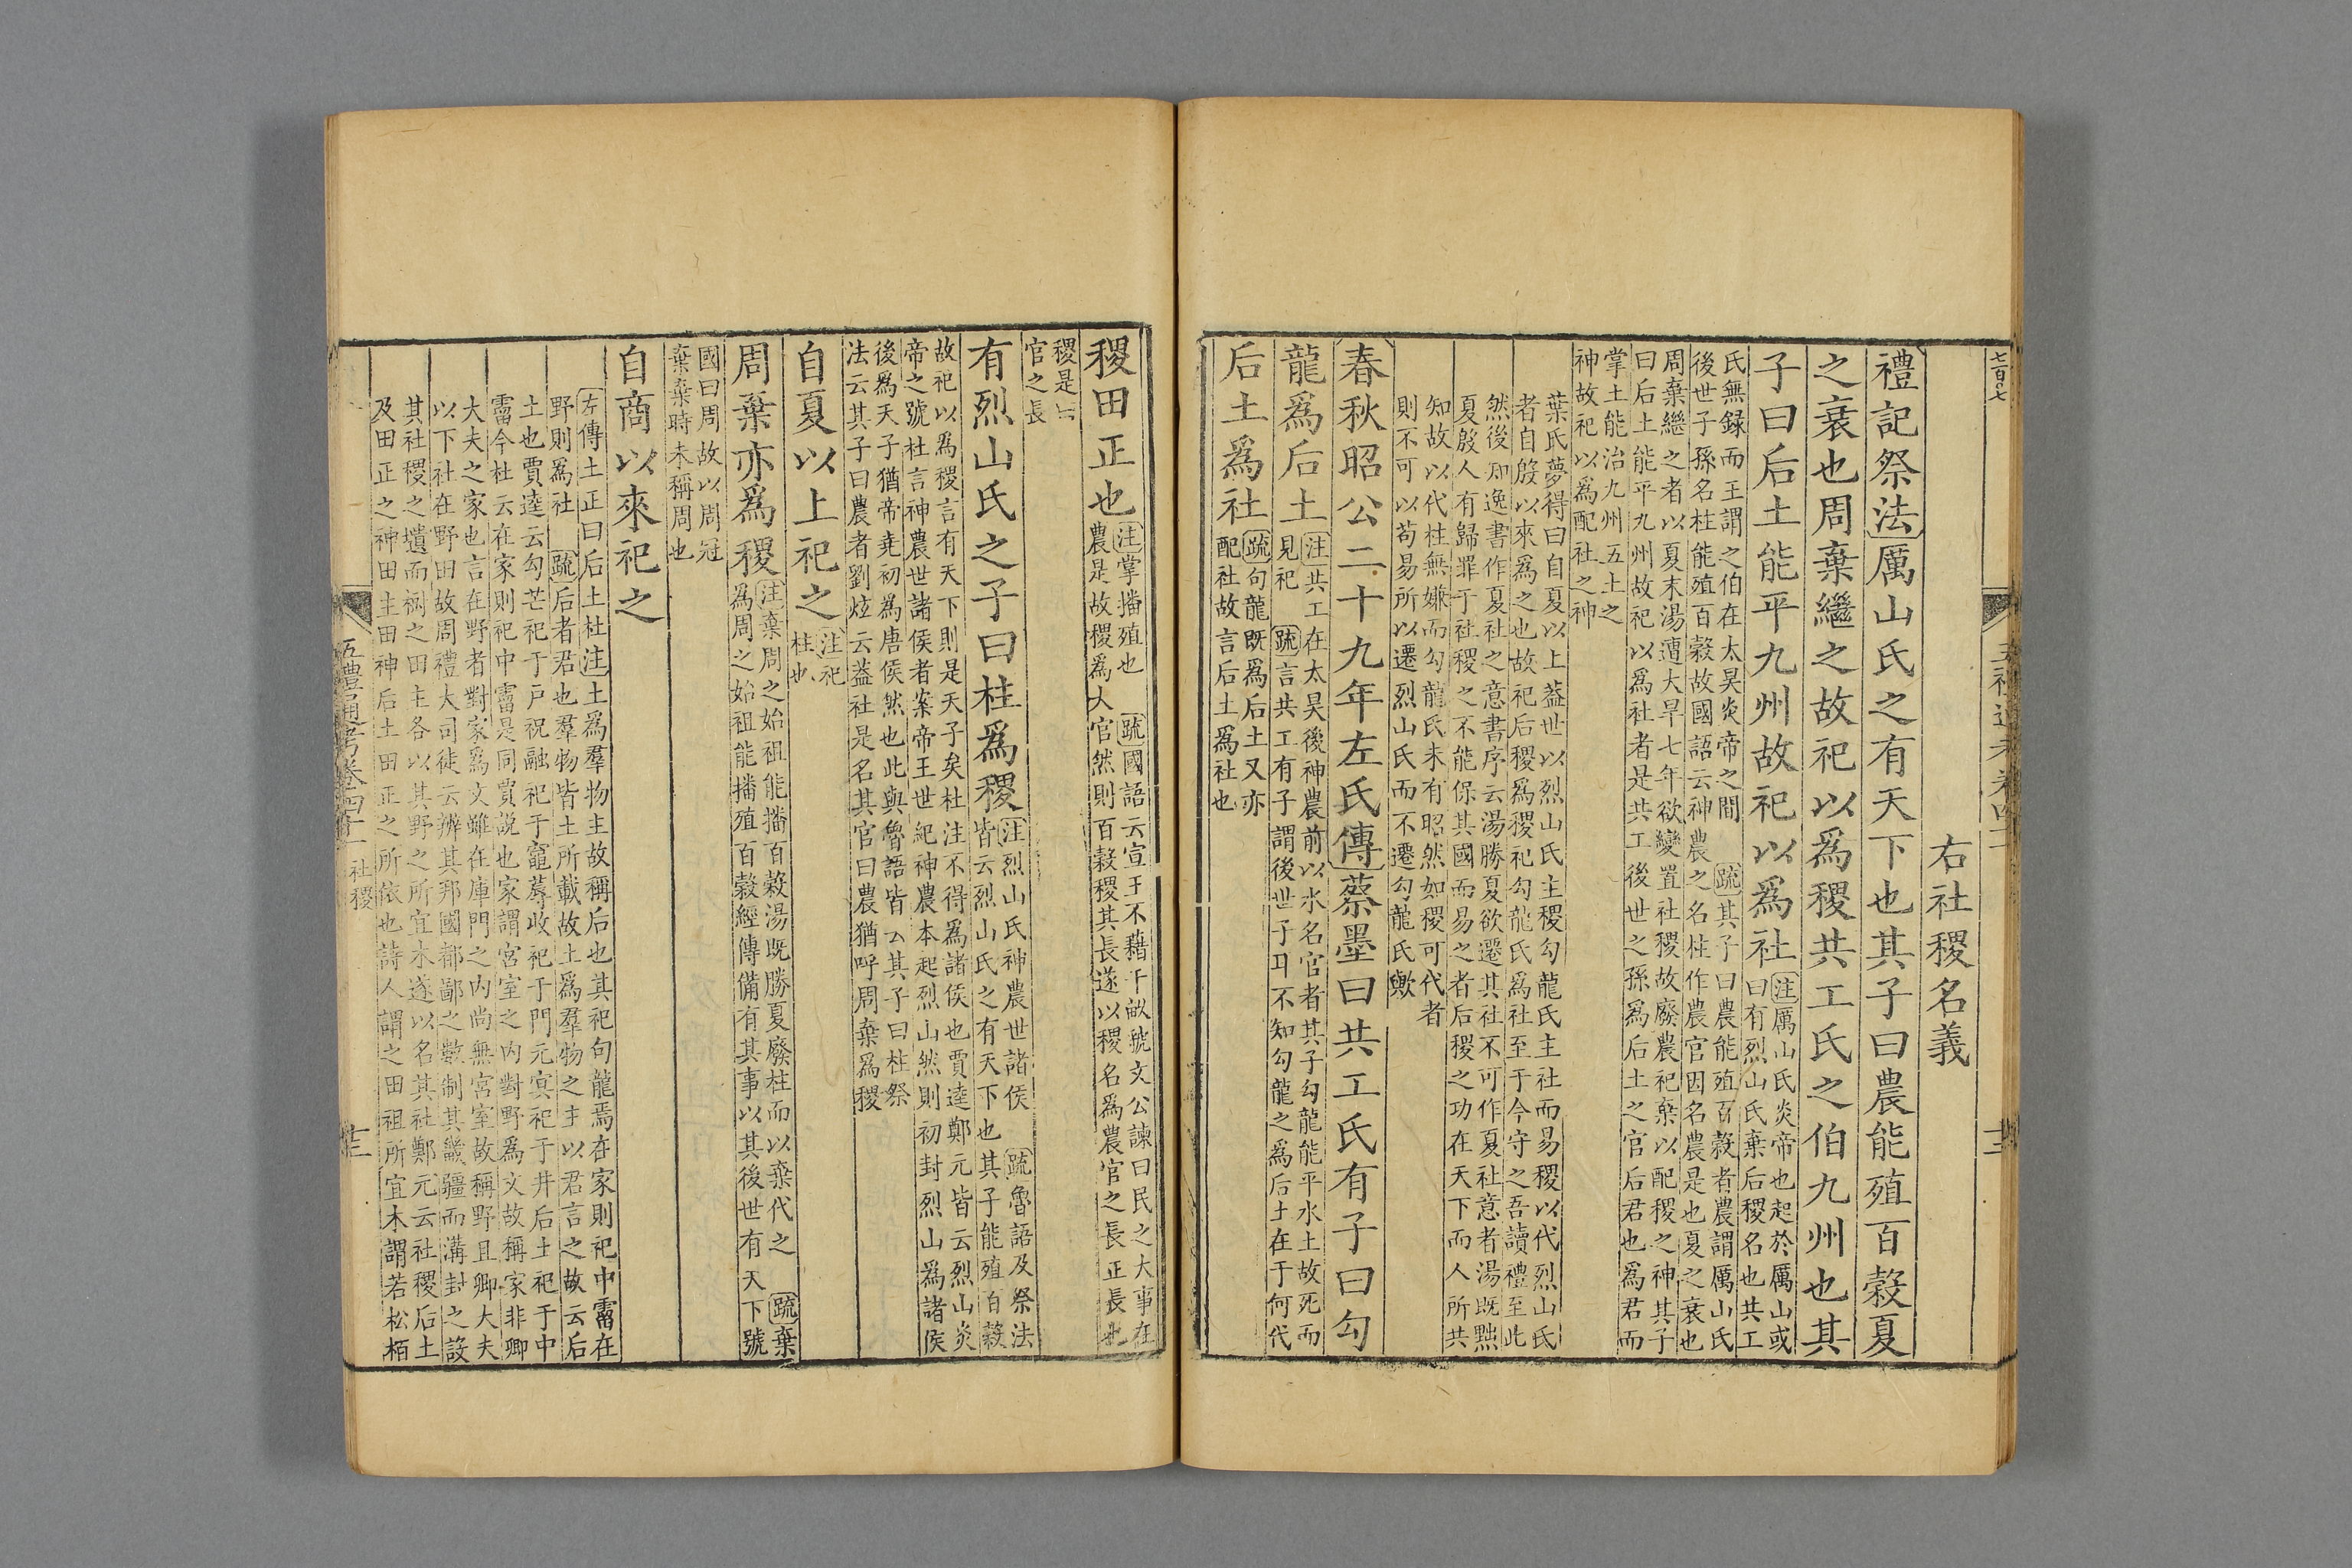 右社稷名義
禮記祭法厲山氏之有天下也其子曰農能殖百穀夏
之衰也周棄繼之故祀以爲稷共工氏之伯九州也其
子曰后土能平九州故祀以爲社注厲山氏炎帝也起於厲山或
曰有烈山氏棄后稷名也共工
氏無録而王謂之伯在太昊炎帝之間 疏其子曰農能殖百穀者農謂厲山氏
後世子孫名柱能殖百穀故國語云神農之名柱作農官因名農是也夏之衰也
周棄繼之者以夏末湯遭大旱七年欲變置社稷故廢農祀棄以配稷之神其子
曰后土能平九州故祀以爲社者是共工後世之孫爲后土之官后君也爲君而
掌土能治九州五土之
神故祀以爲配社之神
葉氏夢得曰自夏以上葢世以烈山氏主稷勾龍氏主社而易稷以代烈山氏
者自殷以來爲之也故祀后稷爲稷祀勾龍氏爲社至于今守之吾讀禮至此
然後知逸書作夏社之意書序云湯勝夏欲遷其社不可作夏社意者湯既黜
夏殷人有歸罪于社稷之不能保其國而易之者后稷之功在天下而人所共
知故以代柱無嫌而勾龍氏未有昭然如稷可代者
則不可以苟易所以遷烈山氏而不遷勾龍氏歟
春秋昭公二十九年左氏傳蔡墨曰共工氏有子曰勾
龍爲后土注共工在太昊後神農前以水名官者其子勾龍能平水土故死而
見祀 疏言共工有子謂後世子耳不知勾龍之爲后土在于何代
后土爲社疏句龍既爲后土又亦
配社故言后土爲社也
稷田正也注掌播殖也 疏國語云宣王不藉千畝虢文公諫曰民之大事在
農是故稷爲大官然則百穀稷其長遂以稷名爲農官之長正長也
稷是
官之長
有烈山氏之子曰柱爲稷注烈山氏神農世諸侯 疏魯語及祭法
皆云烈山氏之有天下也其子能殖百穀
故祀以爲稷言有天下則是天子矣杜注不得爲諸侯也賈逵鄭元皆云烈山炎
帝之號杜言神農世諸侯者案帝王世紀神農本起烈山然則初封烈山爲諸侯
後爲天子猶帝堯初爲唐侯然也此與魯語皆云其子曰柱祭
法云其子曰農者劉炫云葢柱是名其官曰農猶呼周棄爲稷
自夏以上祀之注祀
柱也
周棄亦爲稷注棄周之始祖能播百穀湯既勝夏廢柱而以棄代之 疏棄
爲周之始祖能播殖百穀經傳備有其事以其後世有天下號
國曰周故以周冠
棄棄時未稱周也
自商以來祀之
左傳土正曰后土杜注土爲羣物主故稱后也其祀句龍焉在家則祀中霤在
野則爲社 疏后者君也羣物皆土所載故土爲羣物之主以君言之故云后
土也賈逵云勾芒祀于戸祝融祀于竈蓐收祀于門元冥祀于井后土祀于中
霤今杜云在家則祀中霤是同賈説也家謂宮室之内對野爲文故稱家非卿
大夫之家也言在野者對家爲文雖在庫門之内尚無宮室故稱野且卿大夫
以下社在野田故周禮大司徒云辨其邦國都鄙之數制其畿疆而溝封之設
其社稷之壝而樹之田主各以其野之所宜木遂以名其社鄭元云社稷后土
及田正之神田主田神后土田正之所依也詩人謂之田祖所宜木謂若松栢
五禮通考卷四十一 社稷